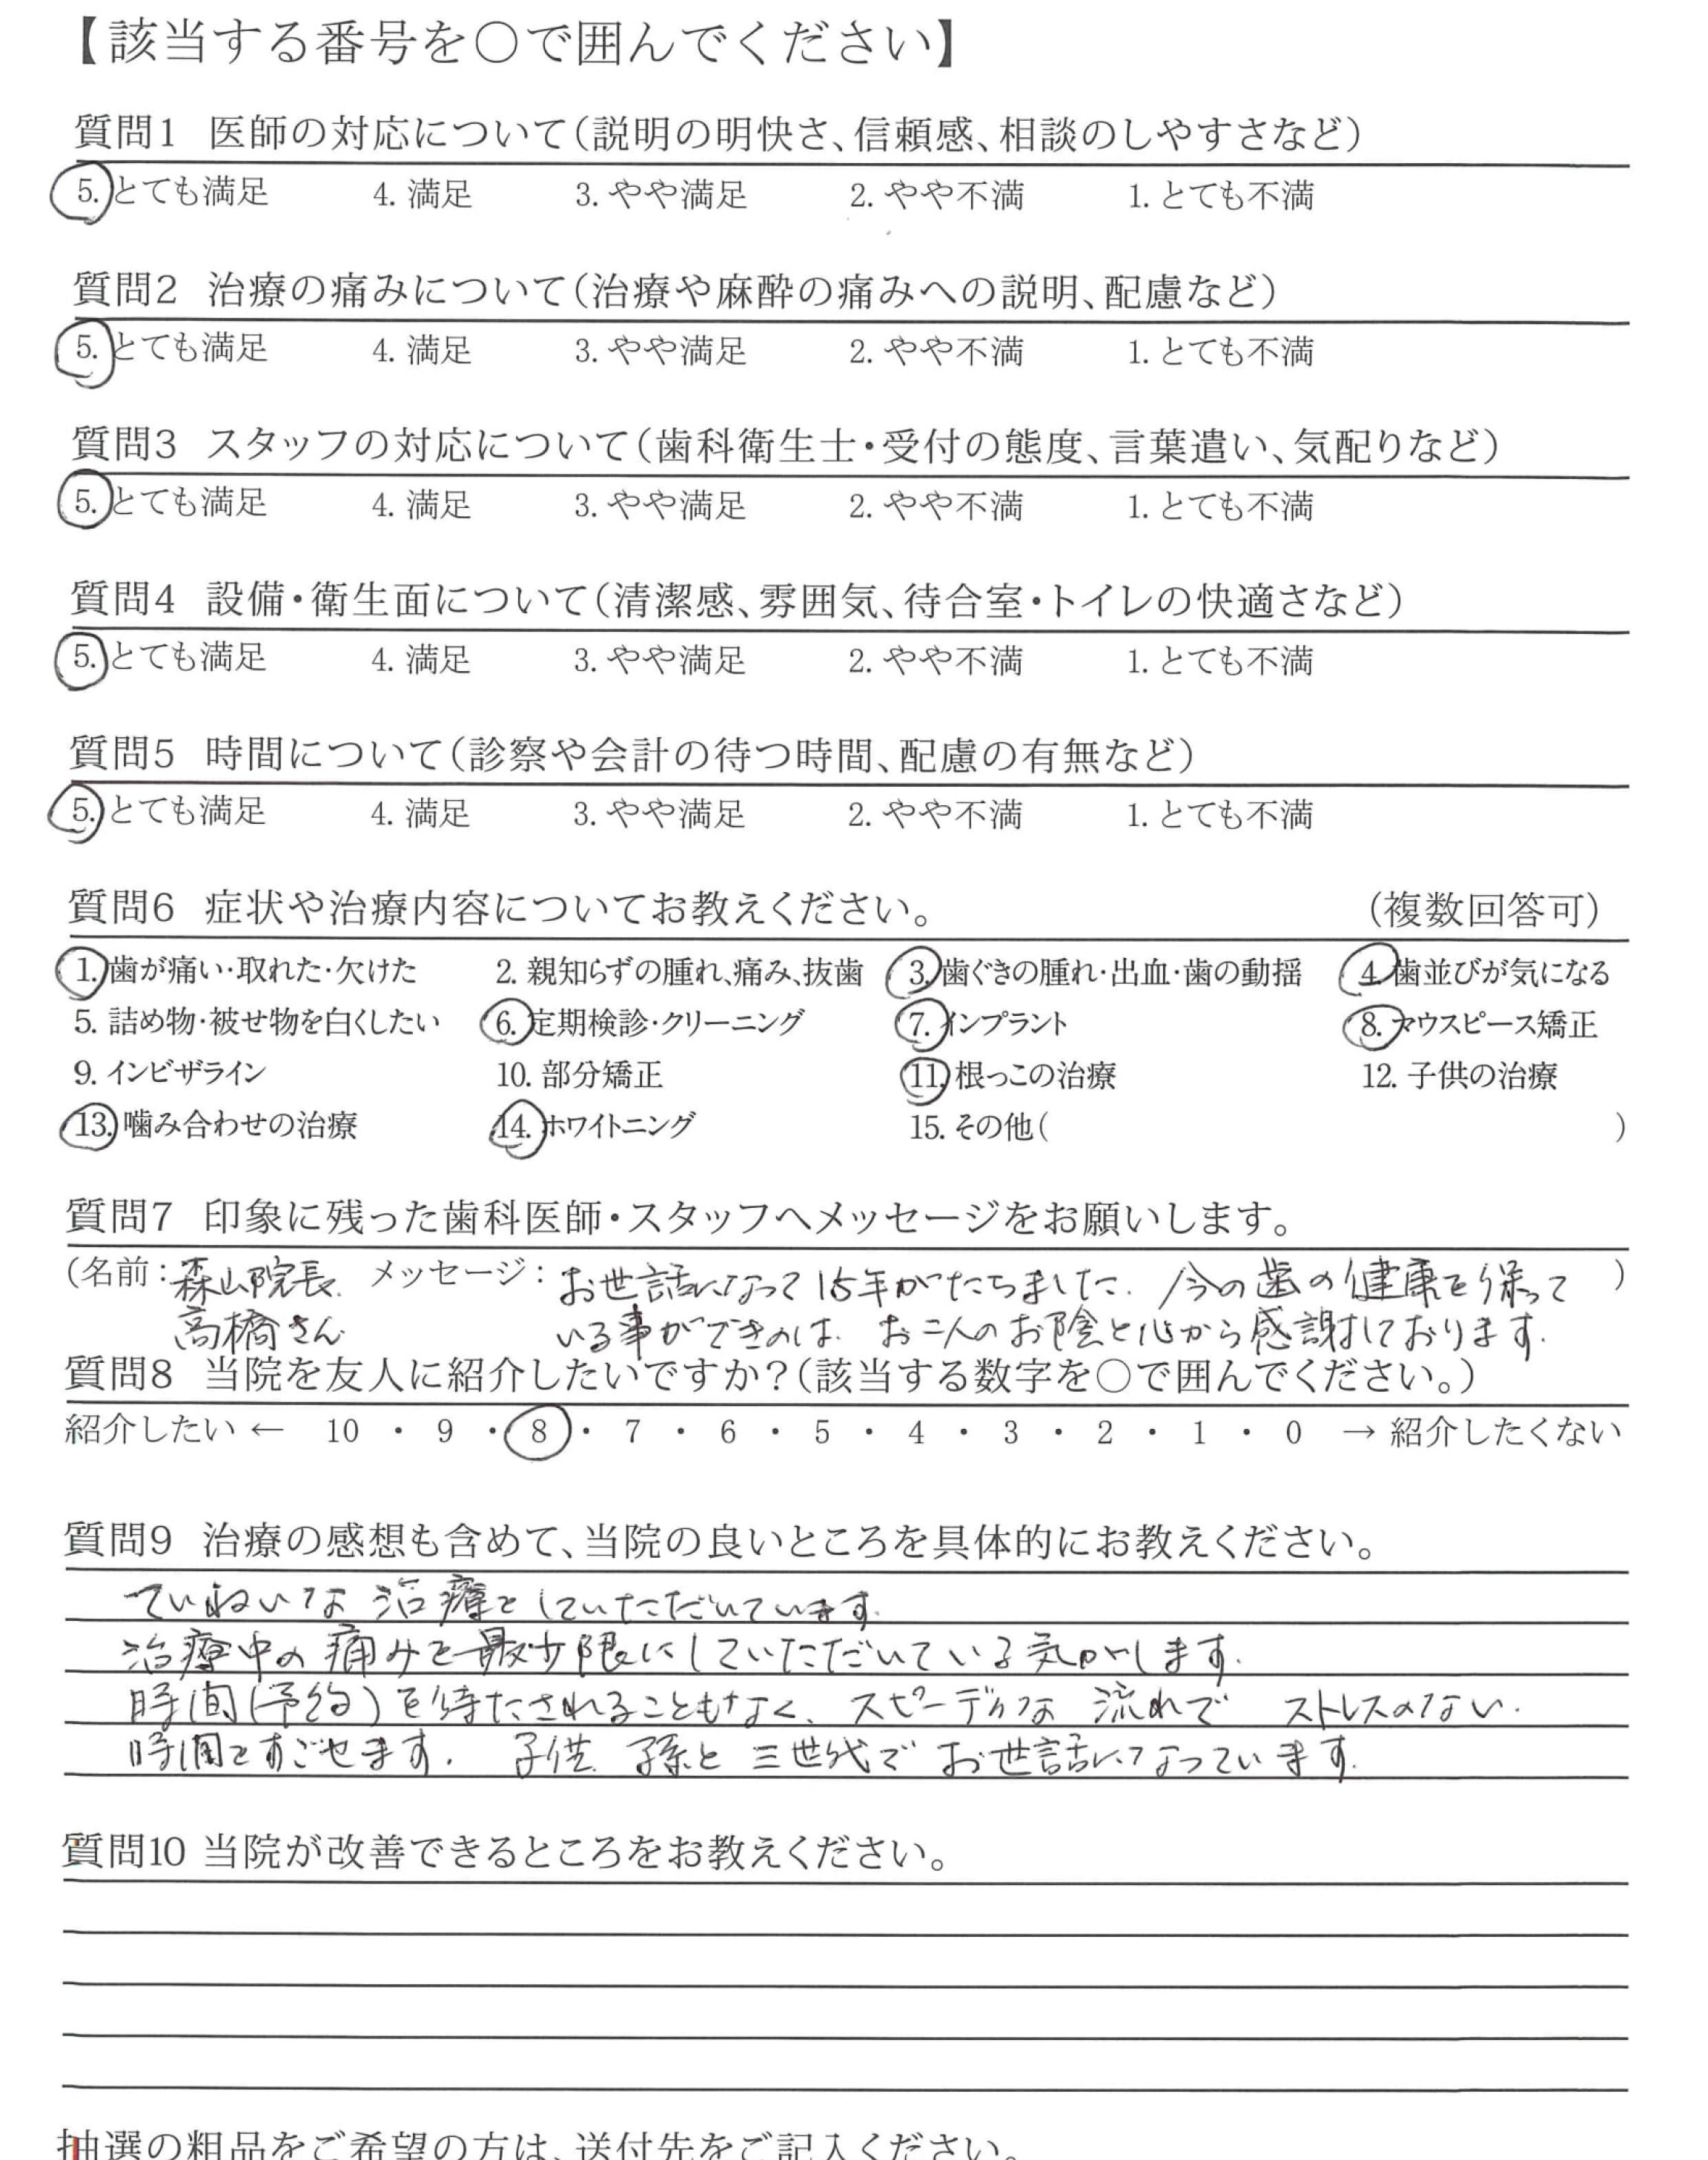 【該当する番号を○で囲んでください】
質問1 医師の対応について（説明の明快さ、信頼感、相談のしやすさなど）
5. とても満足 4. 満足 3. やや満足 2. やや不満 1. とても不満
質問2 治療の痛みについて（治療や麻酔の痛みへの説明、配慮など）
5. とても満足 4. 満足 3. やや満足 2. やや不満 1. とても不満
質問3 スタッフの対応について（歯科衛生士・受付の態度、言葉遣い、気配りなど）
5. とても満足 4. 満足 3. やや満足 2. やや不満 1. とても不満
質問4 設備・衛生面について（清潔感、雰囲気、待合室・トイレの快適さなど）
5. とても満足 4. 満足 3. やや満足 2. やや不満 1. とても不満
質問5 時間について（診察や会計の待つ時間、配慮の有無など）
5. とても満足 4. 満足 3. やや満足 2. やや不満 1. とても不満
質問6 症状や治療内容についてお教えください。 （複数回答可）
1. 歯が痛い・取れた・欠けた 2. 親知らずの腫れ、痛み、抜歯 3. 歯ぐきの腫れ・出血・歯の動揺 4. 歯並びが気になる
5. 詰め物・被せ物を白くしたい 6. 定期検診・クリーニング 7. インプラント 8. マウスピース矯正
9. インビザライン 10. 部分矯正 11. 根っこの治療 12. 子供の治療
13. 噛み合わせの治療 14. ホワイトニング 15. その他（ ）
質問7 印象に残った歯科医師・スタッフへメッセージをお願いします。
（名前：森山院長. メッセージ：お世話になって15年がたちました. 今の歯の健康を保って ）
高橋さん. いる事ができのは. お二人のお陰と心から感謝しております.
質問8 当院を友人に紹介したいですか？（該当する数字を○で囲んでください。）
紹介したい ← 10 ・ 9 ・ 8 ・ 7 ・ 6 ・ 5 ・ 4 ・ 3 ・ 2 ・ 1 ・ 0 → 紹介したくない
質問9 治療の感想も含めて、当院の良いところを具体的にお教えください。
ていねいな 治療をしていただいています.
治療中の痛みを最少限にしていただいている気がします.
時間（予約）を待たされることもなく、スピーデクな 流れで ストレスのない.
時間をすごせます. 子供 孫と 三世代で お世話になっています.
質問10 当院が改善できるところをお教えください。
抽選の粗品をご希望の方は、送付先をご記入ください。